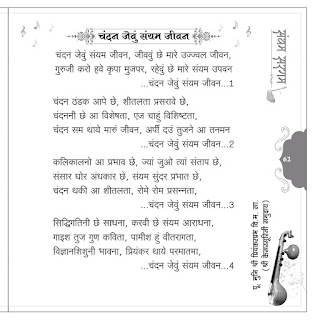 चंदन जेवुं संयम जीवन
चंदन जेवुं संयम जीवन, जीववुं छे मारे उज्ज्वल जीवन,
गुरुजी करो हवे कृपा मुजपर, रहेवुं छे मारे संयम उपवन
...चंदन जेवुं संयम जीवन...1
चंदन ठंडक आपे छे, शीतलता प्रसरावे छे,
चंदननी छे आ विशेषता, एज चाहुं विशिष्टता,
चंदन सम थाये मारुं जीवन, अर्पी दउं तुजने आ तनमन
...चंदन जेवुं संयम जीवन -2
कलिकालनो आ प्रभाव छे, ज्यां जुओ त्यां संताप छे,
संसार घोर अंधकार छे, संयम सुंदर प्रभात छे,
चंदन थकी आ शीतलता, रोमे रोम प्रसन्नता,
...चंदन जेवुं संयम जीवन -3
सिद्धिगतिनी छे साधना, करवी छे संयम आराधना,
गाइश तुज गुण कविता, पामीश हुं वीतरागता,
विज्ञानशिशुनी भावना, प्रियंकर थाये परमातमा,
...चंदन जेवुं संयम जीवन -4
संयम सरगम
62
पू. मुनि श्री प्रियंकरप्रभ वि.म. सा.
(श्री केसरसूरिजी समुदाय)